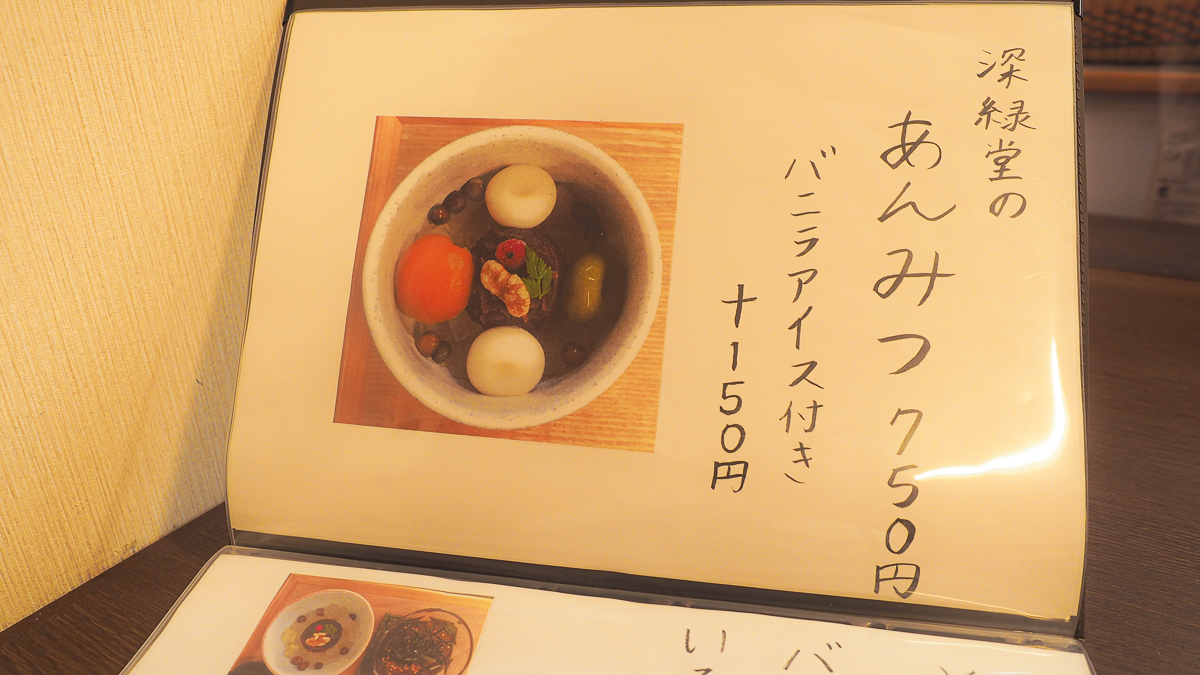 深緑堂の
あんみつ 750円
バニラアイス付き
+150円